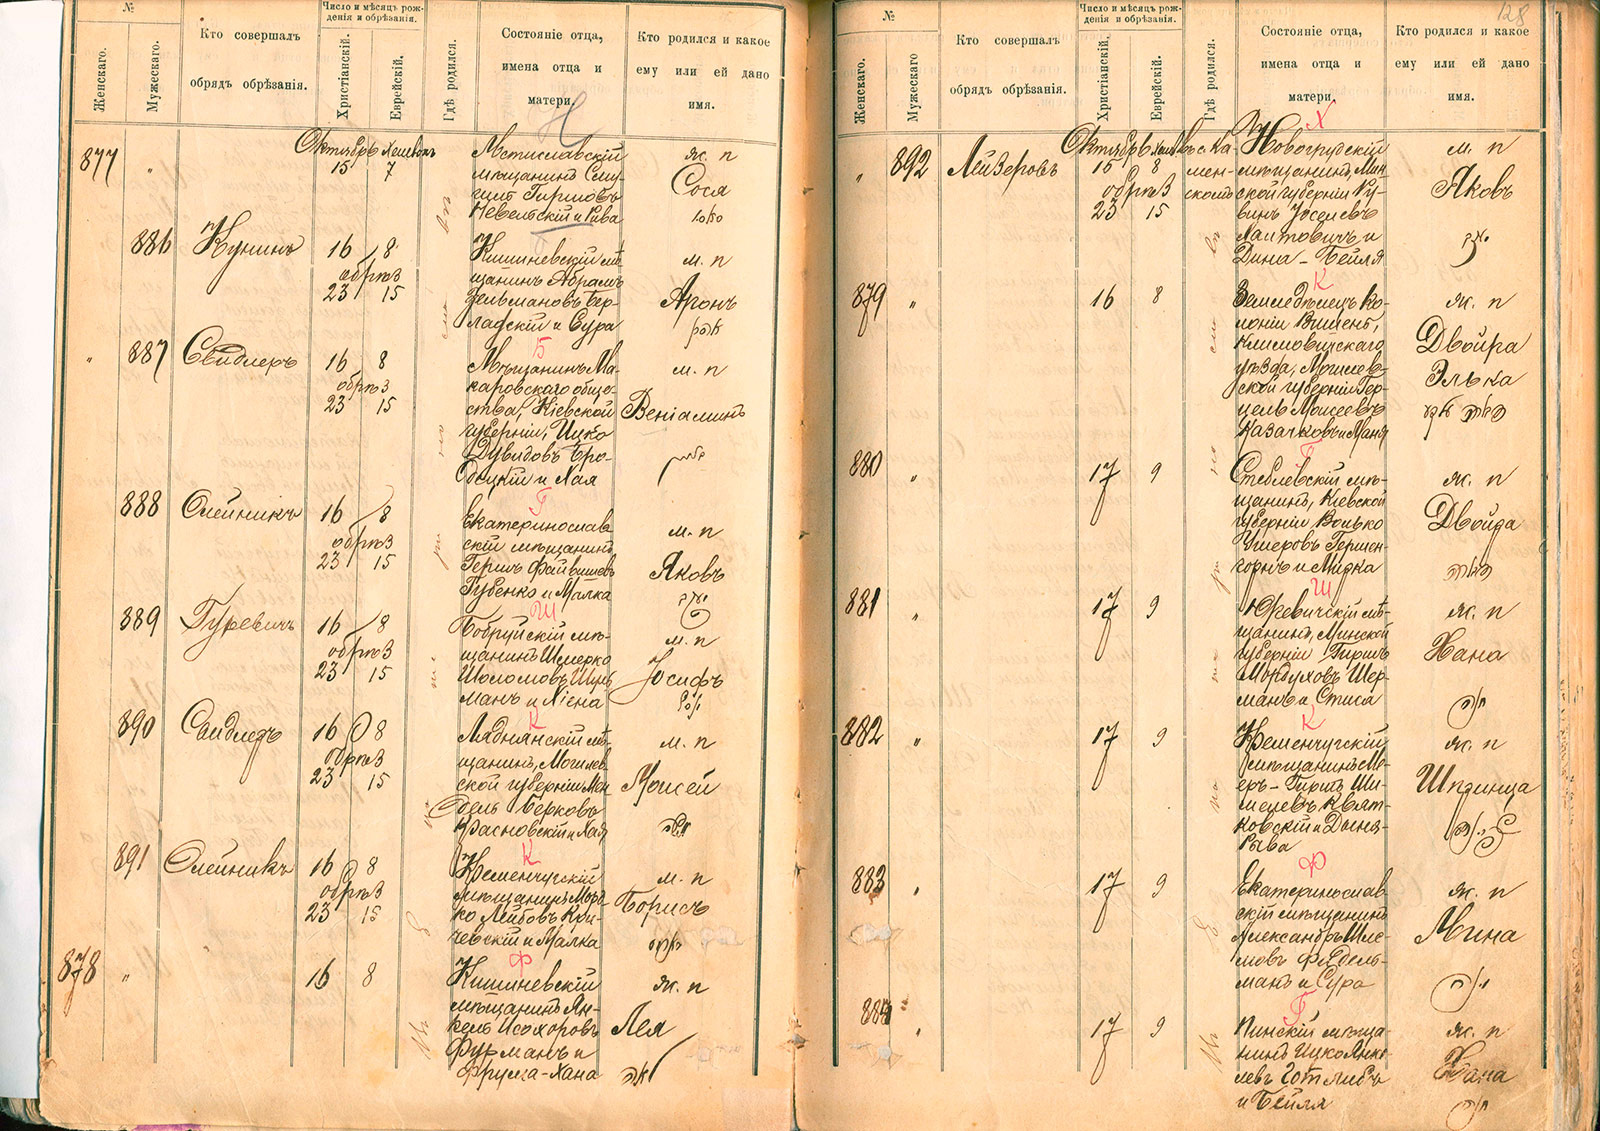 №
Женскаго.
Мужескаго.
Кто совершалъ
обрядъ обрѣзанія.
Число и мѣсяцъ рож-
денія и обрѣзанія.
Христіанскій.
Еврейскій.
Гдѣ родился.
Состояніе отца,
имена отца и
матери.
Кто родился и какое
ему или ей дано
имя.
Н
877 "
Октябрь Хешвонъ
15 7
Мстиславскій
мѣщанинъ
Гиршовъ
Невельскій и Рива
ж. п
Сося
886 Кунинъ
16 8
обрѣз
23 15
Кишиневскій мѣ-
щанинъ Абрамъ
Зельмановъ Бер-
ладскій и Сура
м. п
Аронъ
" 887 Свидлеръ
16 8
обрѣз
23 15
Б
Мѣщанинъ Ма-
каровскаго обще-
ства, Кіевской
губерніи, Ицко
Дувидовъ Бро-
дскій и Хая
м. п
Веніаминъ
888 Олейникъ
16 8
обрѣз
23 15
Г
Екатеринослав
скій мѣщанинъ
Гершъ Файвишевъ
Губенко и Малка
м. п
Яковъ
יעקב
889 Гуревичъ
16 8
обрѣз
23 15
Ш
Бобруйскій мѣ-
щанинъ Шмерко
Шоломовъ Шуль
манъ и Хіена
м. п
Іосифъ
יוסף
890 Свидлеръ
16 8
обрѣз
23 15
К
Ляднянскій мѣ-
щанинъ, Могилев
ской губерніи Мен
дель Берковъ
Красновскій и Хая
м. п
Моисей
משה
891 Олейникъ
16 8
обрѣз
23 15
К
Кременчугскій
мѣщанинъ Морд
ко Лейбовъ Кри-
чевскій и Малка
м. п
Борисъ
878 "
16 8
Ф
Кишиневскій
мѣщанинъ Ян-
кель Исохоровъ
Фурманъ и
Фрума-Хана
ж. п
Лея
לאה
128
№
Женскаго.
Мужескаго
Кто совершалъ
обрядъ обрѣзанія.
Число и мѣсяцъ рож-
денія и обрѣзанія.
Христіанскій.
Еврейскій.
Гдѣ родился.
Состояніе отца,
имена отца и
матери.
Кто родился и какое
ему или ей дано
имя.
" 892 Лейзеровъ
Октябрь
15 8
обрѣз
23 15
въ с. Ка-
мен-
скомъ
Х
Новогрудскій
мѣщанинъ, Мин
ской губерніи Ру-
винъ Іоселевъ
Хаитовичъ и
Дина-Бейля
м. п
Яковъ
יעקב
879 "
16 8
К
Земледѣлецъ ко-
лоніи Вишенъ,
Климовичскаго
уѣзда, Могилев-
ской губерніи Гер-
цель Моисеевъ
Казачковъ и Маня
ж. п
Двойра
Элька
880 "
17 9
Г
Стеблевскій мѣ-
щанинъ, Кіевской
губерніи Волько
Ушеровъ Гершен-
корнъ и Мирка
ж. п
Двойра
881 "
17 9
Ш
Юревичскій мѣ-
щанинъ, Минской
губерніи Гиршъ
Мордуховъ Шер-
манъ и Стиса
ж. п
Хана
חנה
882 "
17 9
К
Кременчугскій
мѣщанинъ Ме-
еръ-Гиршъ Ши-
мелевъ Квят-
ковскій и Дыня-
Рыва
ж. п
Шпринца
883 "
17 9
Ф
Екатеринослав
скій мѣщанинъ
Александръ Шле-
мовъ Фядель-
манъ и Сура
ж. п
Мина
884 "
17 9
Г
Пинскій мѣща-
нинъ Ицко Янке-
левъ Готлибъ
и Бейля
ж. п
Хана
חנה